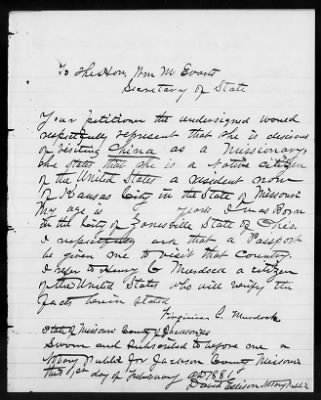 To The Hon, Wm M Evarts
Secretary of State
Your petitioner the undersigned would
respectfully represent that she is desirous
of visiting China as a Missionary
she states that she is a native citizen
of the United States a resident now
of Kansas City in the State of Missouri
My age is years I was Born
in the City of Zanesville State of Ohio.
I respectfully ask that a Passport
be given me to visit that Country.
I refer to Henry C Murdock a citizen
of the United States who will verify the
facts herein stated
Virginia C. Murdock
State of Missouri County of Jackson ss
Sworn and subscribed to before me a
Notary Public for Jackson County Missouri
this 1st day of February AD 1881.
David Notary Public